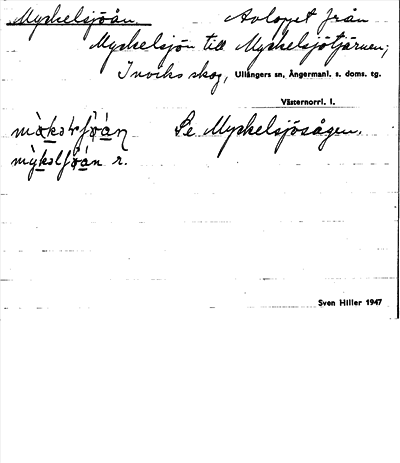 Myckelsjöån. Avloppet från
Myckelsjön till Myckelsjötjärnen;
Inviks skog, Ullångers sn, Ångermanl. s. doms. tg.
Västernorrl. l.
Se Myckelsjösågen.
r.
Sven Hiller 1947